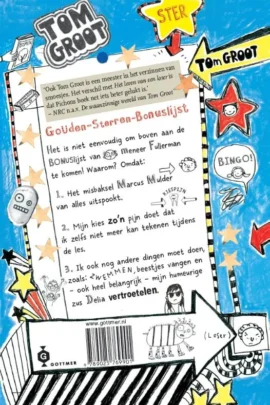 TOM
GROOT
STER
TOM GROOT
'Ook Tom Groot is een meester in het verzinnen van
smoesjes. Het verschil met Het leven van een loser is
dat Pichons boek net iets beter gelukt is.'
– NRC n.a.v. De waanzinnige wereld van Tom Groot
GoUden-Sterren-BonuslijSt
Het is niet eenvoudig om boven aan de
BONUSlijst van Meneer Fullerman
te komen! Waarom? Omdat:
BINGO!
1. Het misbaksel Marcus Mulder
van alles uitspookt.
KIESPIJN
2. Mijn kies zo'n pijn doet dat
ik zelfs niet meer kan tekenen tijdens
de les.
3. Ik ook nog andere dingen moet doen,
zoals: ZWEMMEN, beestjes vangen en
- ook heel belangrijk - mijn humeurige
zus Delia vertroetelen.
www.gottmer.nl
G
GOTTMER
(Loser)